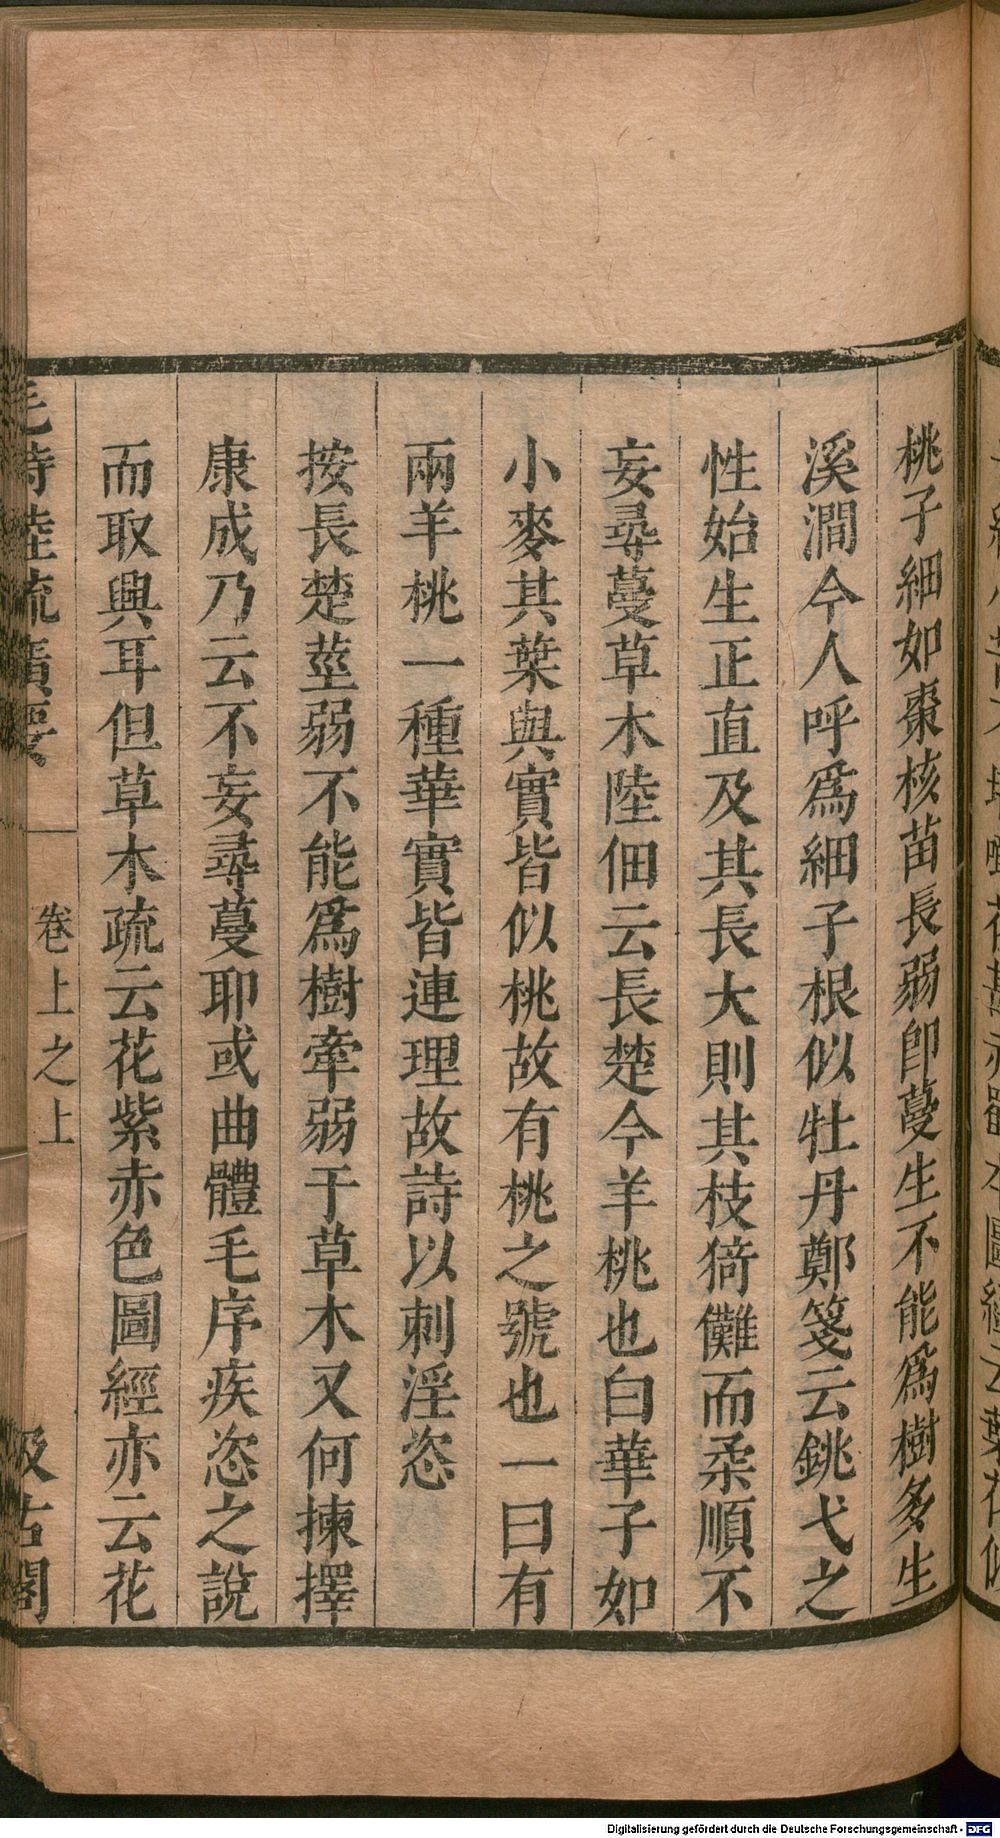 桃子細如棗核苗長弱卽蔓生不能爲樹多生
溪澗今人呼爲細子根似牡丹鄭箋云銚弋之
性始生正直及其長大則其枝猗儺而柔順不
妄尋蔓草木陸佃云長楚今羊桃也白華子如
小麥其葉與實皆似桃故有桃之號也一曰有
兩羊桃一種華實皆連理故詩以刺淫恣
按長楚莖弱不能爲樹牽弱于草木又何揀擇
康成乃云不妄尋蔓耶或曲體毛序疾恣之說
而取興耳但草木疏云花紫赤色圖經亦云花
毛詩陸疏廣要
卷上之上
汲古閣
Digitalisierung gefördert durch die Deutsche Forschungsgemeinschaft - DFG